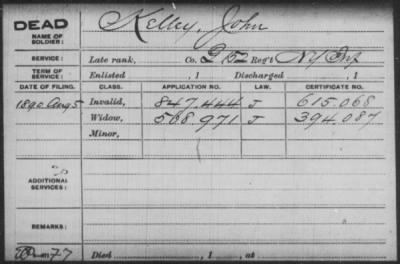 DEAD
NAME OF SOLDIER: Kelley, John
SERVICE: Late rank, Co. G 52 Reg't NY Inf
TERM OF SERVICE: Enlisted , 1 Discharged , 1
DATE OF FILING. CLASS. APPLICATION NO. LAW. CERTIFICATE NO.
1890 Aug 5 Invalid, 847.444 J 615.068
Widow, 568.971 J 394.087
Minor,
ADDITIONAL SERVICES:
REMARKS:
77 Died , 1 , at